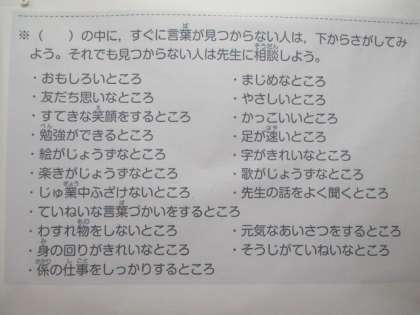 ※（　　）の中に，すぐに言葉が見つからない人は，下からさがしてみ
よう。それでも見つからない人は先生に相談しよう。
・おもしろいところ　　・まじめなところ
・友だち思いなところ　　・やさしいところ
・すてきな笑顔をするところ　　・かっこいいところ
・勉強ができるところ　　・足が速いところ
・絵がじょうずなところ　　・字がきれいなところ
・楽きがじょうずなところ　　・歌がじょうずなところ
・じゅ業中ふざけないところ　　・先生の話をよく聞くところ
・ていねいな言葉づかいをするところ
・わすれ物をしないところ　　・元気なあいさつをするところ
・身の回りがきれいなところ　　・そうじがていねいなところ
・係の仕事をしっかりするところ